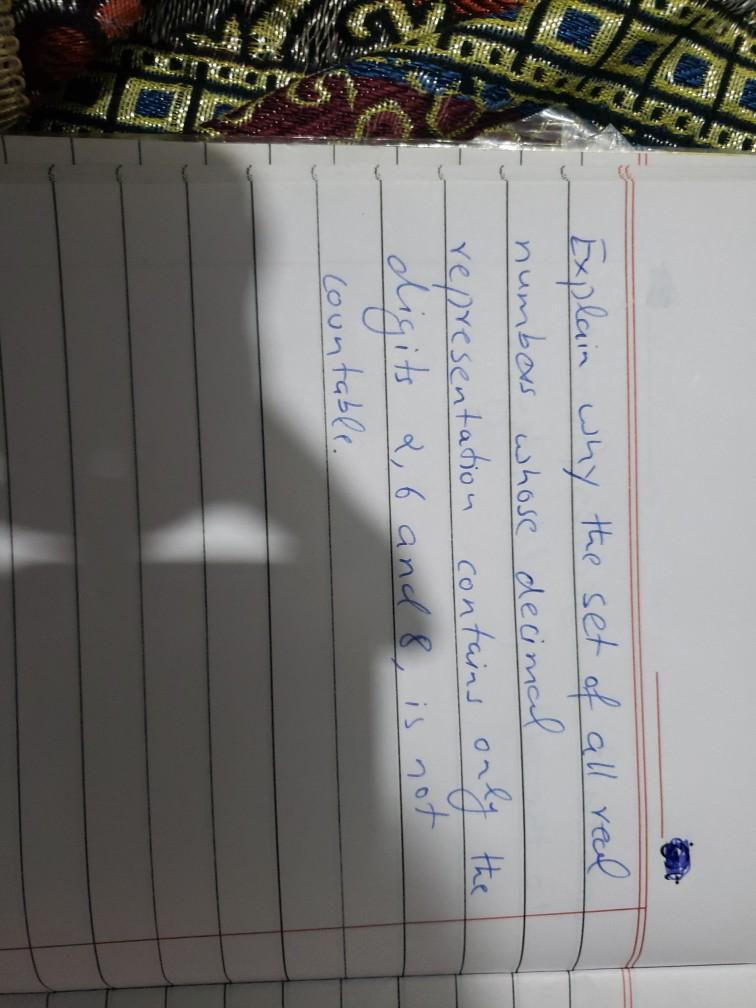 Explain why the set of all real
numbers whose decimal
representation contains only the
digits 2, 6 and 8, is not
countable.